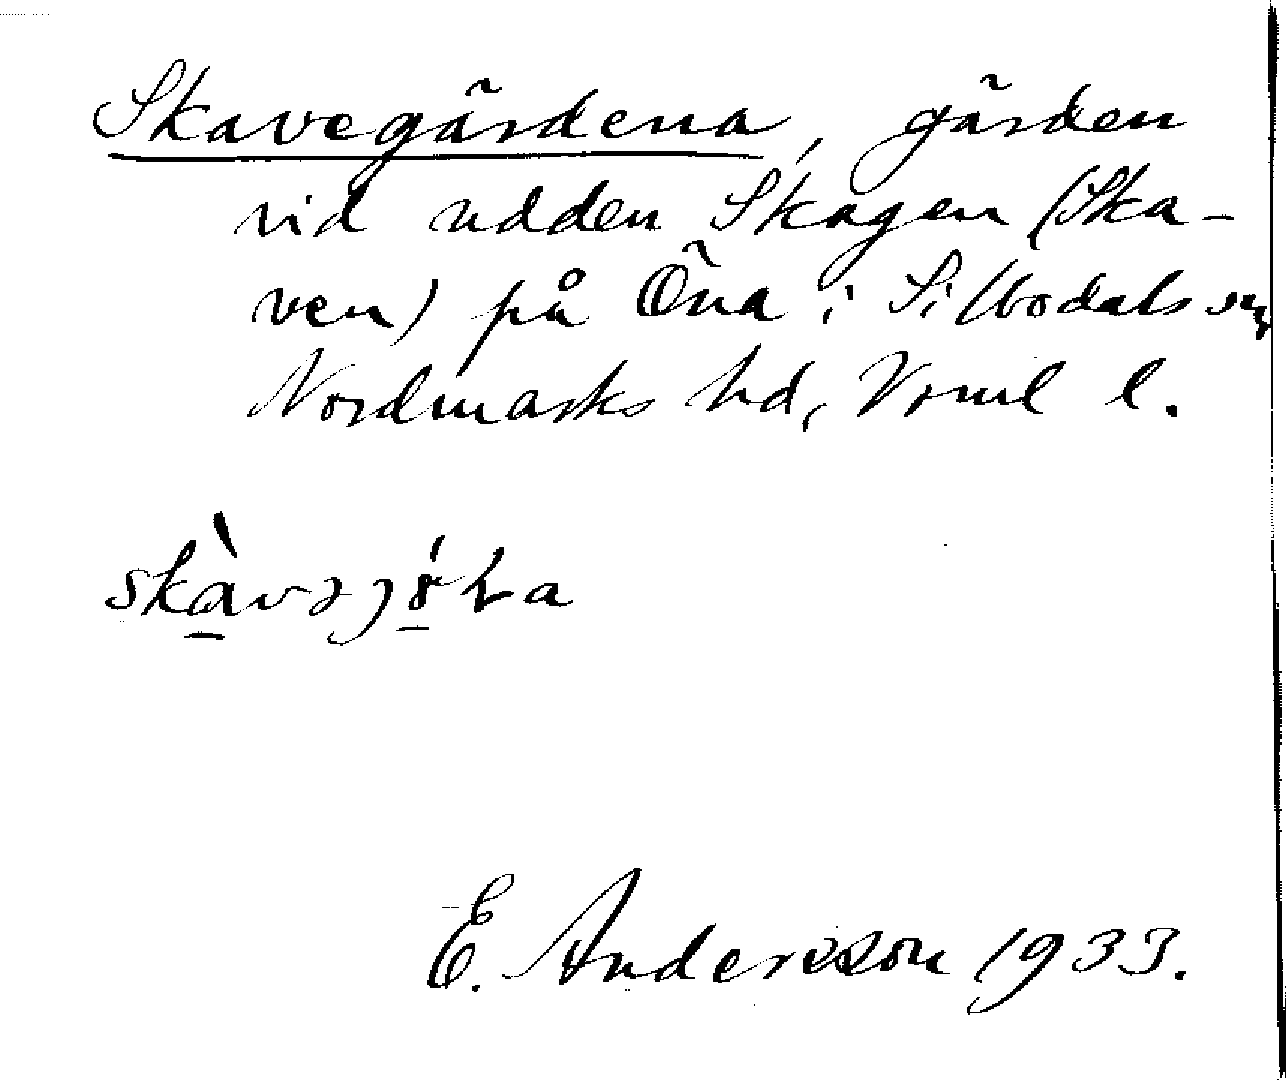 Skavegärdena, gärden
vid udden Skagen (Ska-
ven) på Öna i Silbodals sn,
Nordmarks hd, Vrml l.
E. Andersson 1933.